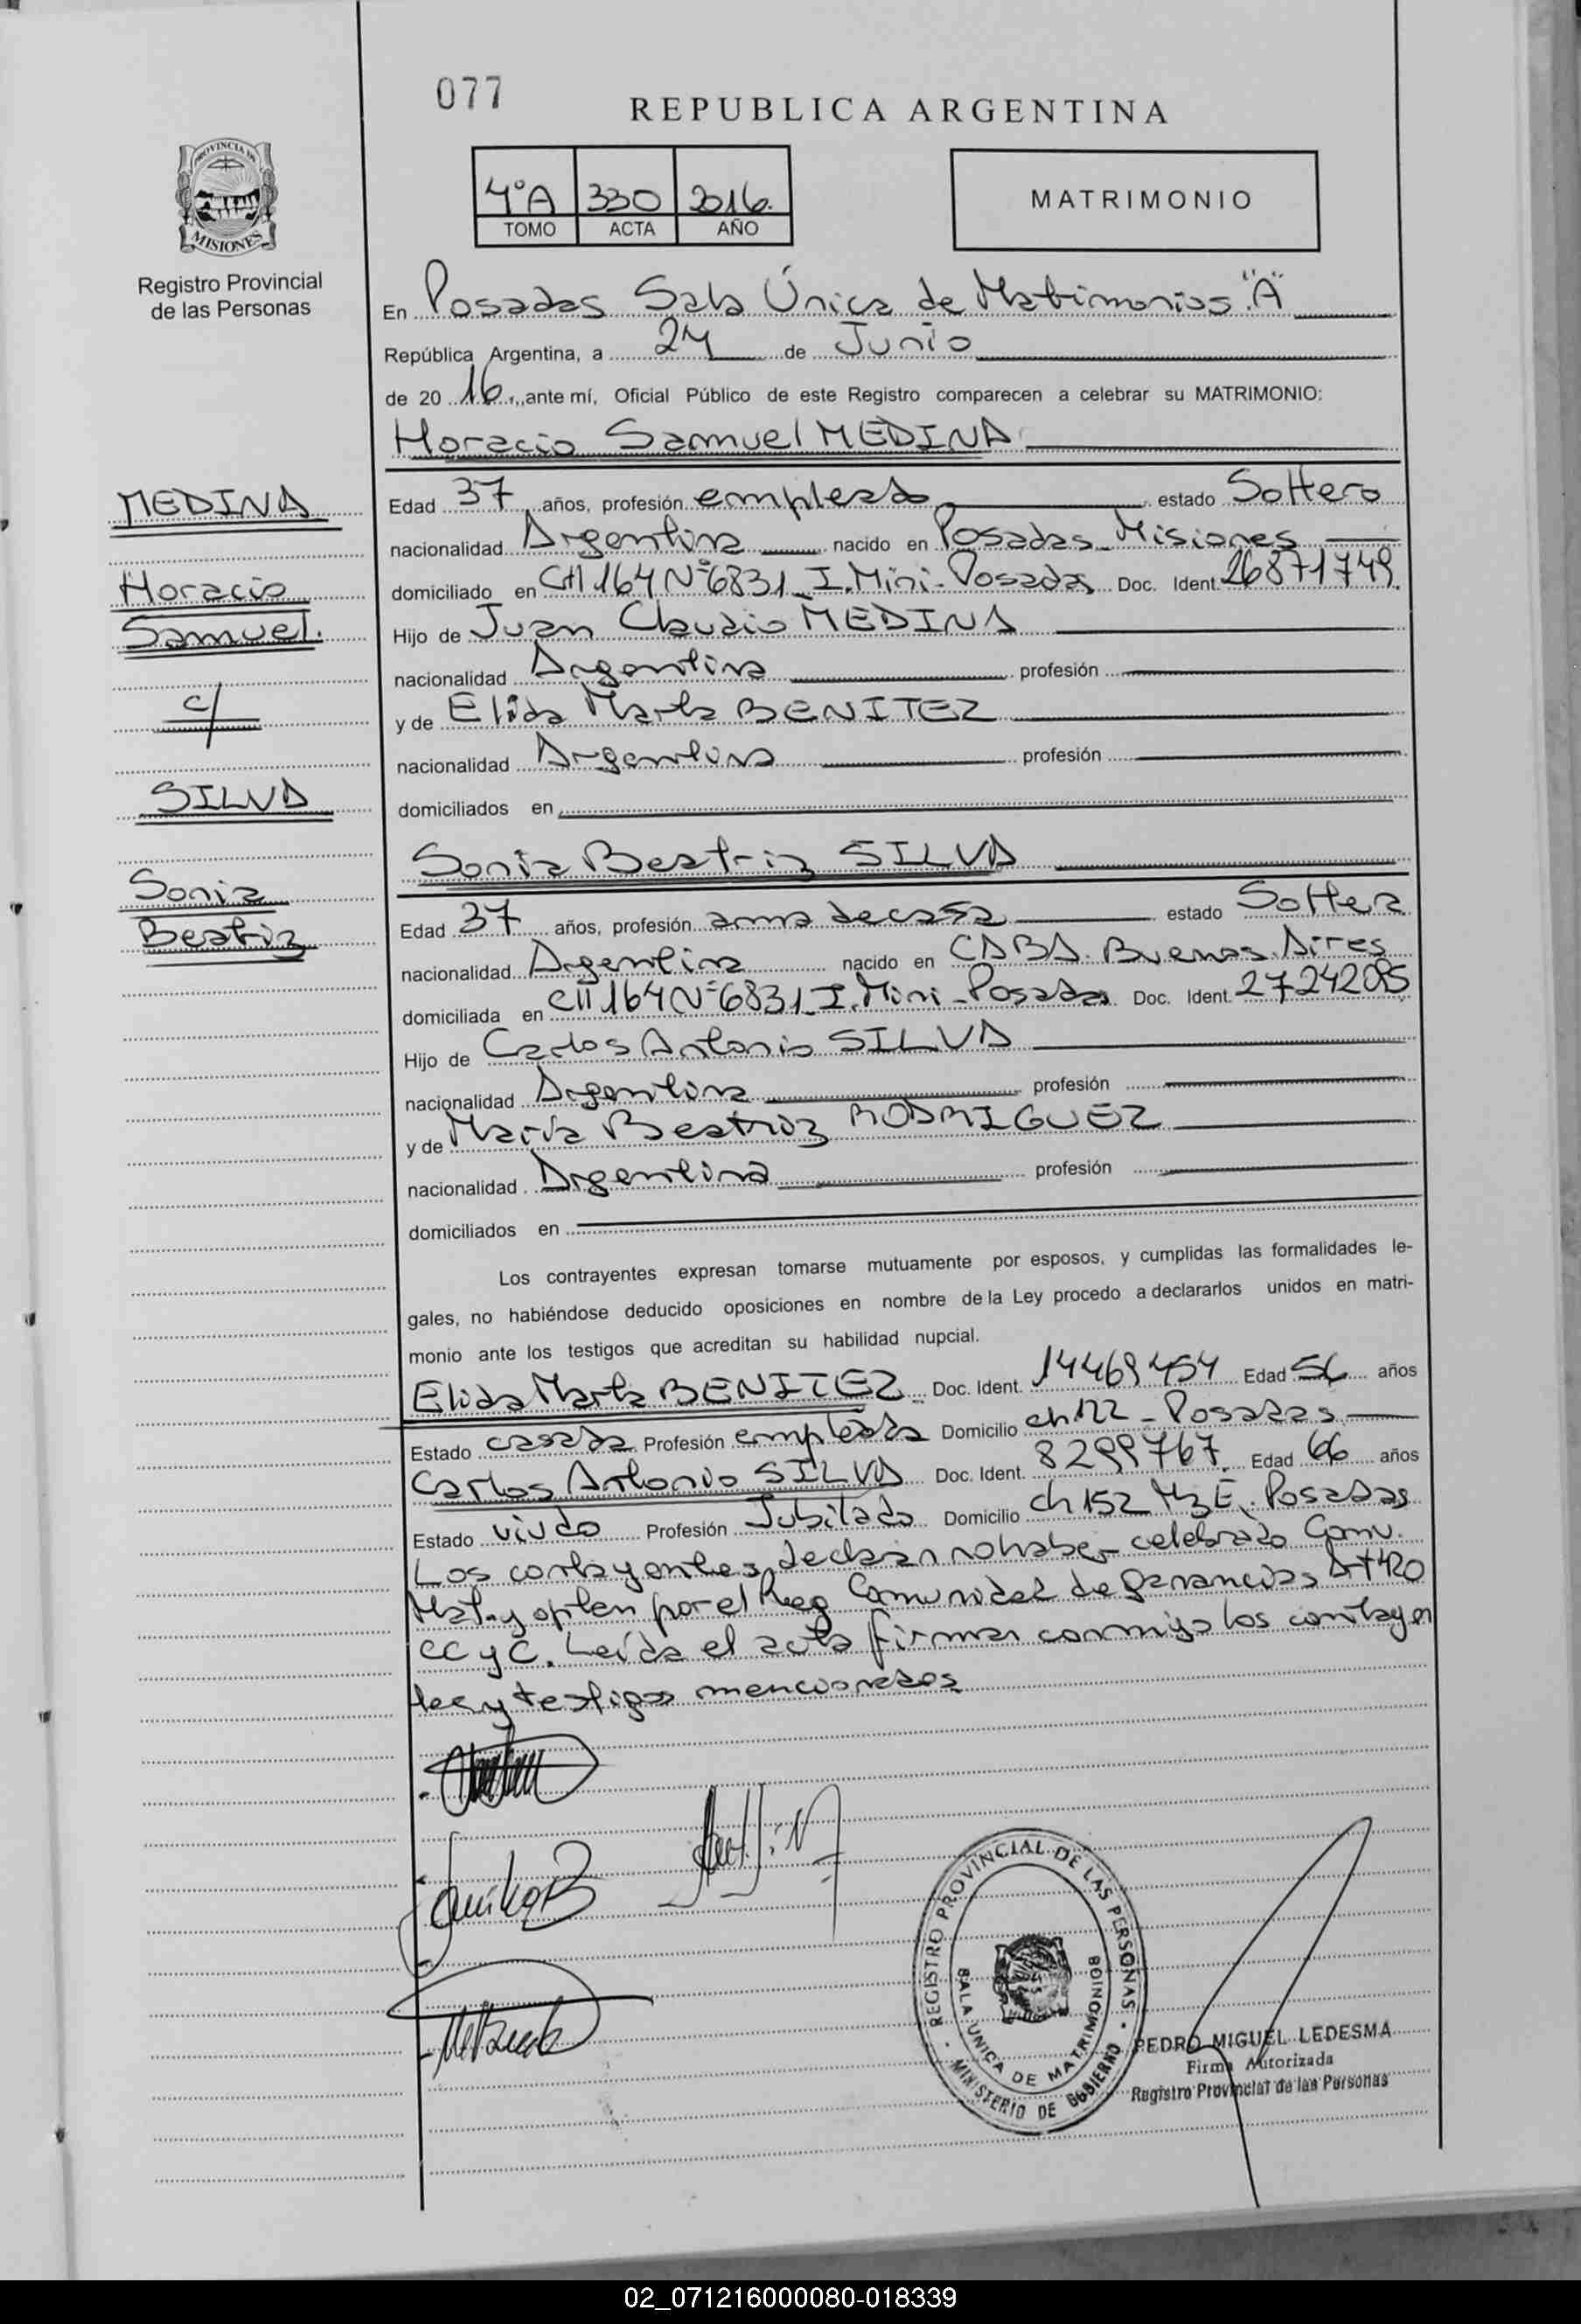 077
REPUBLICA ARGENTINA
4°A 330 2016.
TOMO ACTA AÑO
MATRIMONIO
PROVINCIA DE
MISIONES
Registro Provincial
de las Personas
En Posadas Sala Única de Matrimonios "A"
República Argentina, a 24 de Junio
de 20 16, ante mí, Oficial Público de este Registro comparecen a celebrar su MATRIMONIO:
Horacio Samuel MEDINA
MEDINA
Horacio
Samuel.
c/
SILVA
Sonia
Beatriz
Edad 37 años, profesión empleado estado Soltero
nacionalidad Argentina nacido en Posadas - Misiones
domiciliado en CH 164 N° 6831 - I. Mini - Posadas Doc. Ident. 26871749.
Hijo de Juan Claudio MEDINA
nacionalidad Argentina profesión
y de Elida Marta BENITEZ
nacionalidad Argentina profesión
domiciliados en
Sonia Beatriz SILVA
Edad 37 años, profesión ama de casa estado Soltera
nacionalidad Argentina nacido en CABA. Buenos Aires
domiciliada en CH 164 N° 6831 - I. Mini - Posadas Doc. Ident. 27242085
Hijo de Carlos Antonio SILVA
nacionalidad Argentina profesión
y de María Beatriz RODRIGUEZ
nacionalidad Argentina profesión
domiciliados en
Los contrayentes expresan tomarse mutuamente por esposos, y cumplidas las formalidades le-
gales, no habiéndose deducido oposiciones en nombre de la Ley procedo a declararlos unidos en matri-
monio ante los testigos que acreditan su habilidad nupcial.
Elida Marta BENITEZ Doc. Ident. 14469454 Edad 56 años
Estado casada Profesión empleada Domicilio ch 122 - Posadas
Carlos Antonio SILVA Doc. Ident. 8299767 Edad 66 años
Estado viudo Profesión Jubilado Domicilio ch 152 Mz E. Posadas
Los contrayentes declaran no haber celebrado Conv.
Mat. y optan por el Reg Comunidad de ganancias Art 420
CC y C. Leída el acta firman conmigo los contrayen
tes y testigos mencionados
REGISTRO PROVINCIAL DE LAS PERSONAS
SALA UNICA DE MATRIMONIOS
MINISTERIO DE GOBIERNO
PEDRO MIGUEL LEDESMA
Firma Autorizada
Registro Provincial de las Personas
02_071216000080-018339